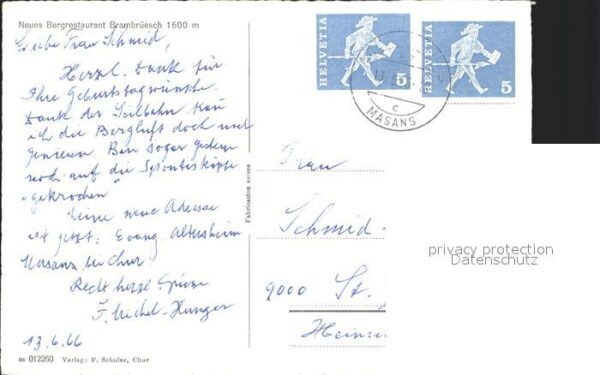 Neues Bergrestaurant Brambrüesch 1600 m
Liebe Frau Schmid,
Herzl. Dank für
Ihre Geburtstagwünsche.
Dank der Seilbahn kann
ich die Bergluft doch noch
genießen. Bin sogar gestern
noch auf die Spontisköpfe
"gekrochen"
Meine neue Adresse
ist jetzt: Evang. Altersheim
Masans, bei Chur
Recht herzl. Grüsse
F. Michel-Hunger
13.6.66
m 012260 Verlag: F. Schuler, Chur
Fabrication suisse
HELVETIA 5
HELVETIA 5
C
MASANS
Frau
Schmid-
9000 St.
Heinse
privacy protection
Datenschutz